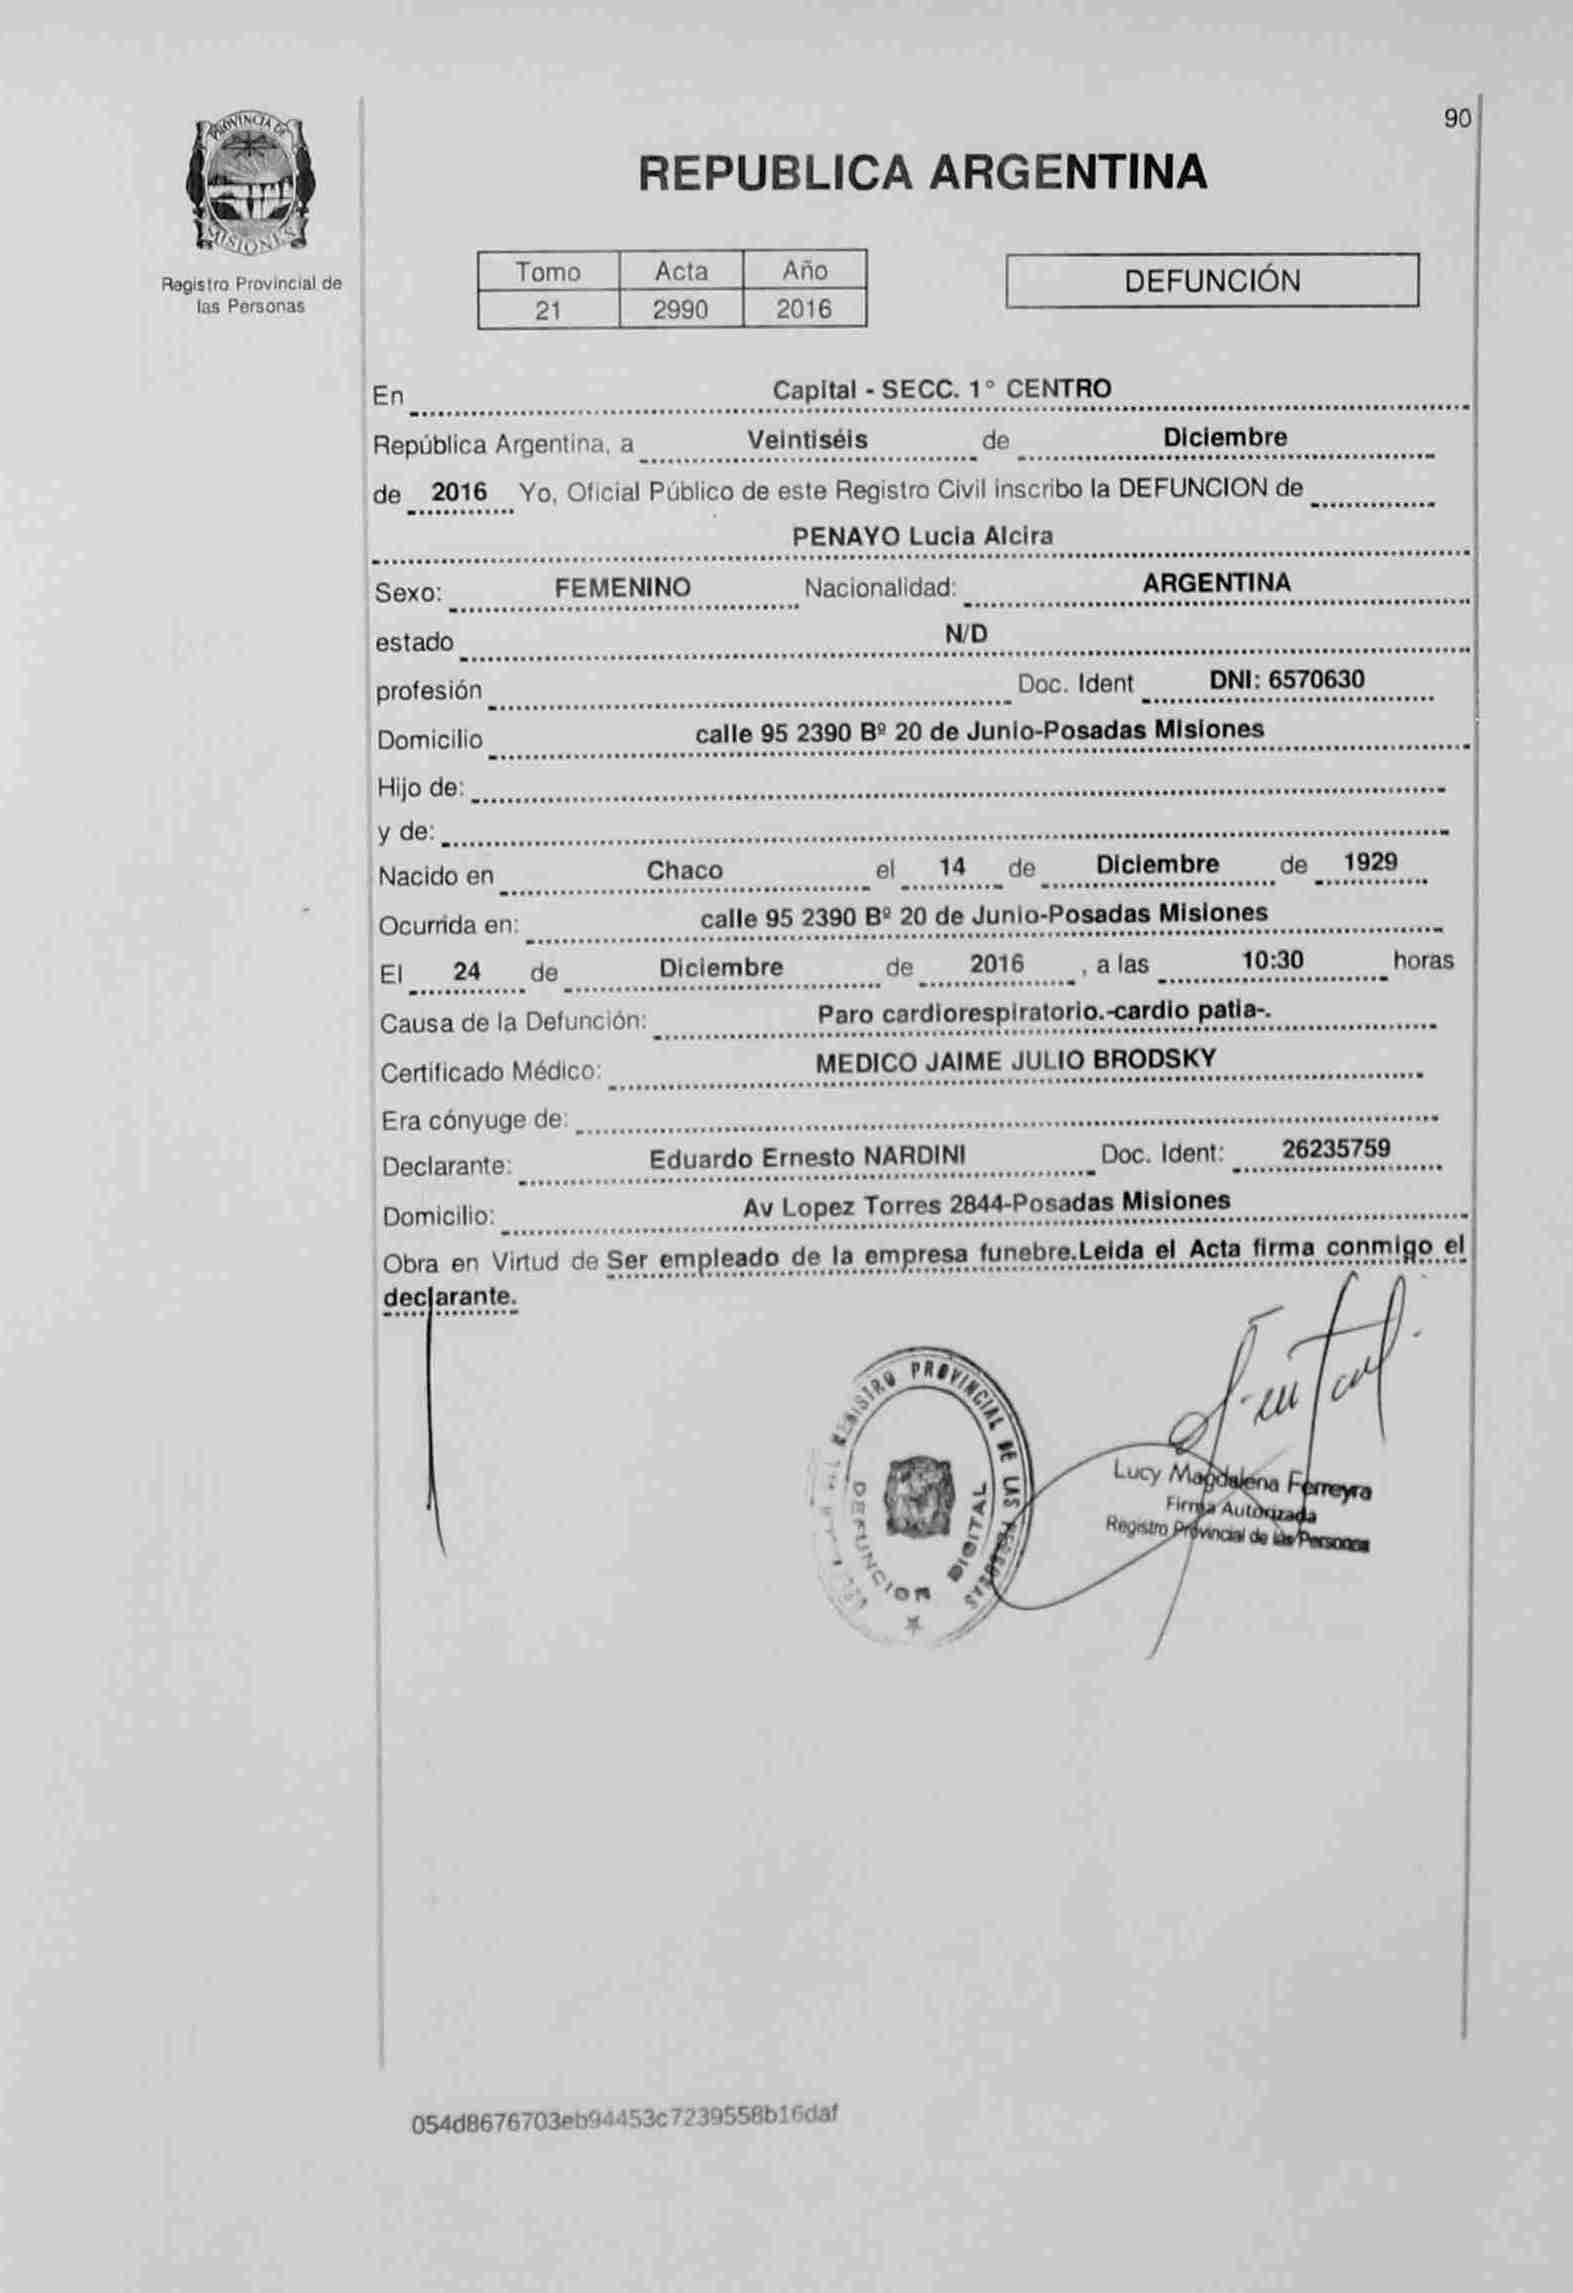 90
PROVINCIA DE
MISIONES
Registro Provincial de
las Personas
REPUBLICA ARGENTINA
Tomo Acta Año
21 2990 2016
DEFUNCIÓN
En Capital - SECC. 1° CENTRO
República Argentina, a Veintiséis de Diciembre
de 2016 Yo, Oficial Público de este Registro Civil inscribo la DEFUNCION de
PENAYO Lucia Alcira
Sexo: FEMENINO Nacionalidad: ARGENTINA
estado N/D
profesión Doc. Ident DNI: 6570630
Domicilio calle 95 2390 Bº 20 de Junio-Posadas Misiones
Hijo de:
y de:
Nacido en Chaco el 14 de Diciembre de 1929
Ocurrida en: calle 95 2390 Bº 20 de Junio-Posadas Misiones
El 24 de Diciembre de 2016 , a las 10:30 horas
Causa de la Defunción: Paro cardiorespiratorio.-cardio patia-.
Certificado Médico: MEDICO JAIME JULIO BRODSKY
Era cónyuge de:
Declarante: Eduardo Ernesto NARDINI Doc. Ident: 26235759
Domicilio: Av Lopez Torres 2844-Posadas Misiones
Obra en Virtud de Ser empleado de la empresa funebre.Leida el Acta firma conmigo el
declarante.
REGISTRO PROVINCIAL DE LAS PERSONAS
DEFUNCION DIGITAL
Lucy Magdalena Ferreyra
Firma Autorizada
Registro Provincial de las Personas
054d8676703eb94453c7239558b16daf